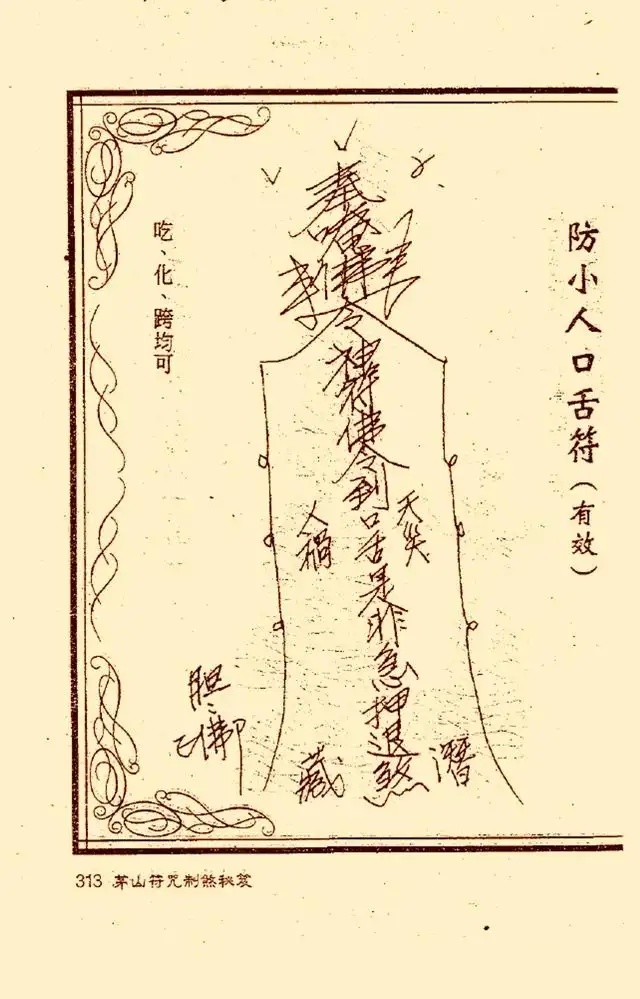 防小人口舌符(有效)
奉
佛令
神符佛令到口舌是非急押退煞
天災
人禍
潛
藏
吃、化、跨均可
313 茅山符咒制煞秘笈